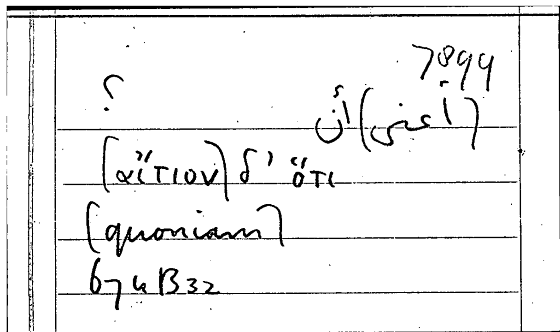 7899
؟
(أعني) أن
(αἴτιον) δ' ὅτι
(quoniam)
67a B32